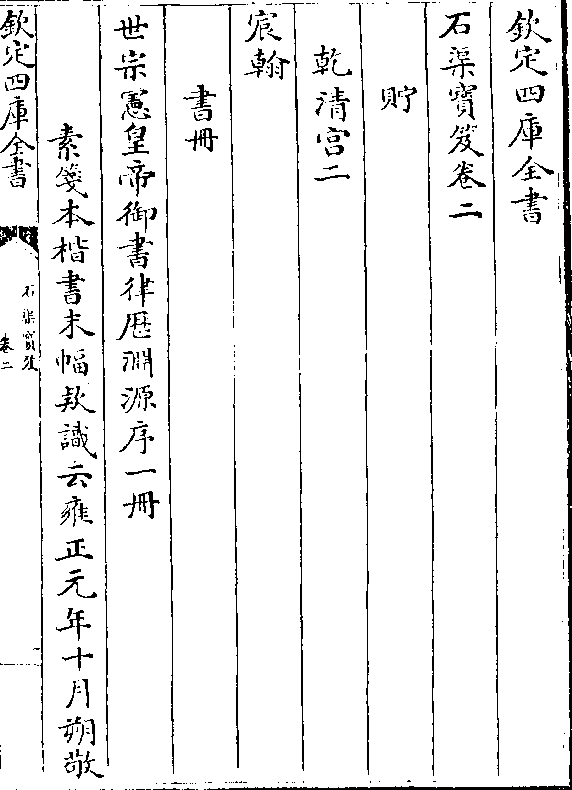 欽定四庫全書
石渠寶笈卷二
貯
乾清宫二
宸翰
書冊
世宗憲皇帝御書律歴淵源序一冊
素箋本楷書末幅款識云雍正元年十月朔敬
欽定四庫全書
石渠寶笈
卷二